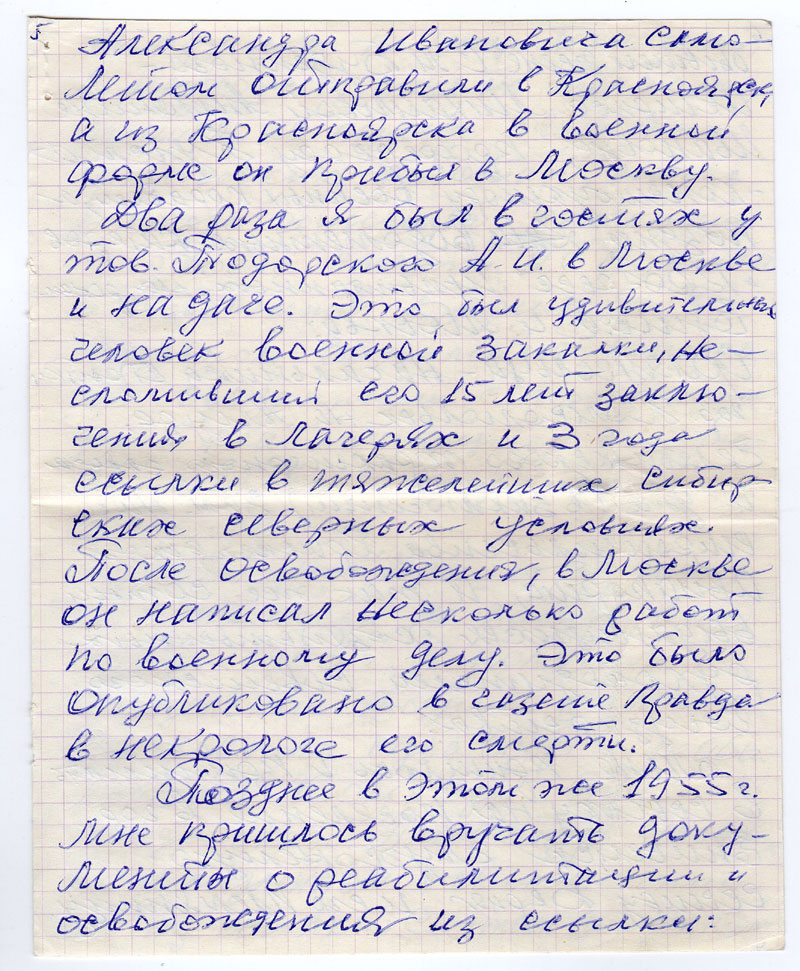 5
Александра Ивановича само-
летом отправили в Красноярск,
а из Красноярска в военной
форме он прибыл в Москву.
Два раза я был в гостях у
тов. Тодорского А.И. в Москве
и на даче. Это был удивительный
человек военной закалки, не-
сломивший его 15 лет заклю-
чения в лагерях и 3 года
ссылки в тяжелейших сибир
ских северных условиях.
После освобождения, в Москве
он написал несколько работ
по военному делу. Это было
опубликовано в газете Правда
в некрологе его смерти.
Позднее в этом же 1955 г.
мне пришлось вручать доку-
менты о реабилитации и
освобождения из ссылки: